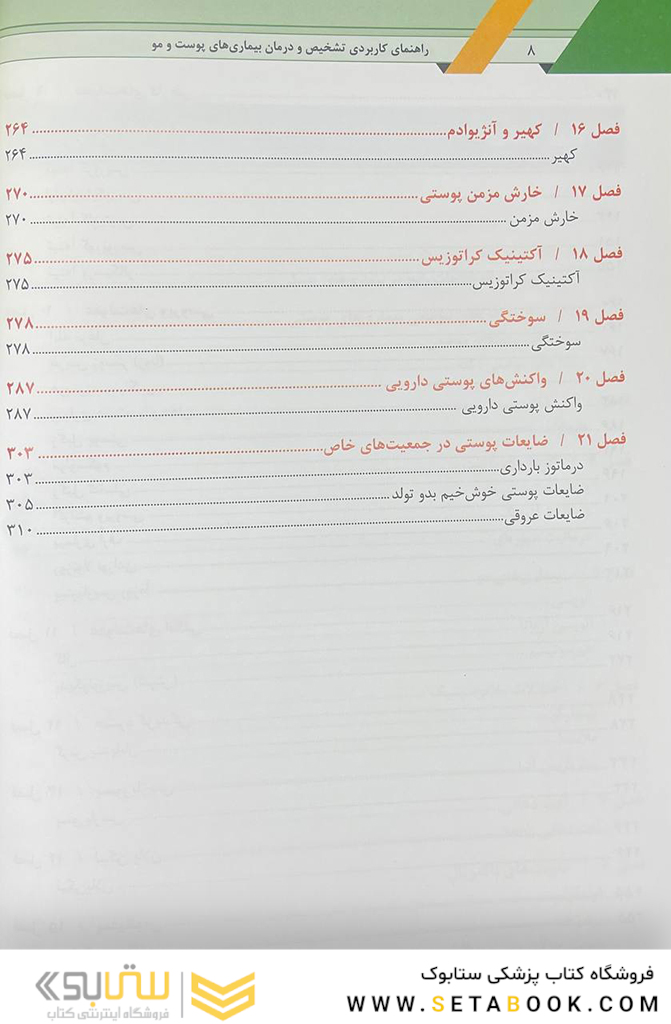 ۸
راهنمای کاربردی تشخیص و درمان بیماری‌های پوست و مو
فصل ۱۶ / کهیر و آنژیوادم ۲۶۴
کهیر ۲۶۴
فصل ۱۷ / خارش مزمن پوستی ۲۷۰
خارش مزمن ۲۷۰
فصل ۱۸ / آکتینیک کراتوزیس ۲۷۵
آکتینیک کراتوزیس ۲۷۵
فصل ۱۹ / سوختگی ۲۷۸
سوختگی ۲۷۸
فصل ۲۰ / واکنش‌های پوستی دارویی ۲۸۷
واکنش پوستی دارویی ۲۸۷
فصل ۲۱ / ضایعات پوستی در جمعیت‌های خاص ۳۰۳
درماتوز بارداری ۳۰۳
ضایعات پوستی خوش‌خیم بدو تولد ۳۰۵
ضایعات عروقی ۳۱۰
فروشگاه کتاب پزشکی ستابوک
WWW.SETABOOK.COM
ستابوک
فروشگاه اینترنتی کتاب